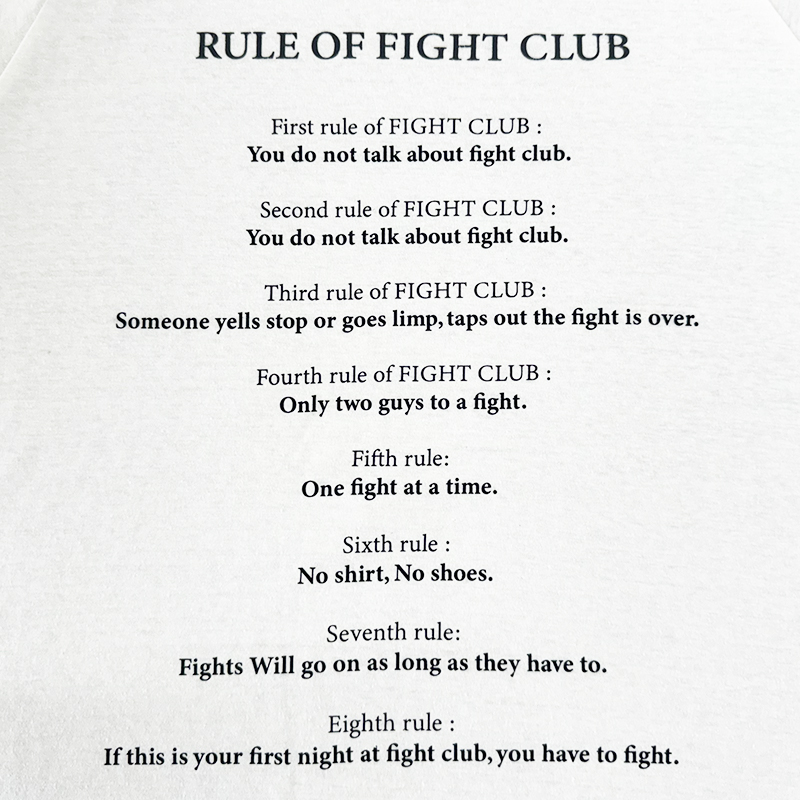 RULE OF FIGHT CLUB
First rule of FIGHT CLUB :
You do not talk about fight club.
Second rule of FIGHT CLUB :
You do not talk about fight club.
Third rule of FIGHT CLUB :
Someone yells stop or goes limp, taps out the fight is over.
Fourth rule of FIGHT CLUB :
Only two guys to a fight.
Fifth rule:
One fight at a time.
Sixth rule :
No shirt, No shoes.
Seventh rule:
Fights Will go on as long as they have to.
Eighth rule :
If this is your first night at fight club, you have to fight.